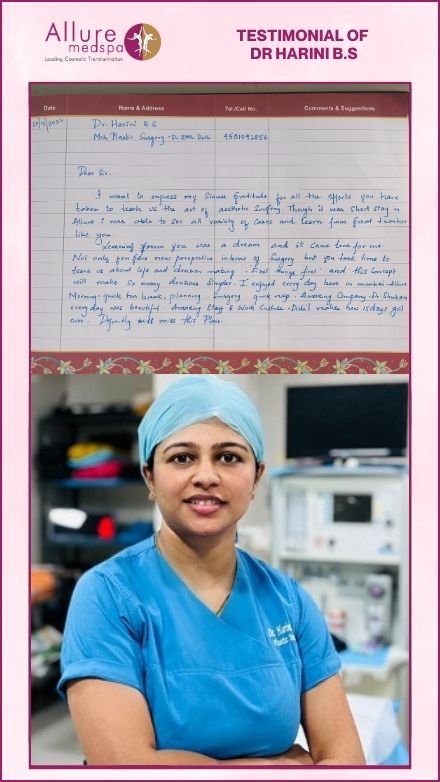 Allure
medspa
Leading Cosmetic Transformation
TESTIMONIAL OF
DR HARINI B.S
Date Name & Address Tel./Cell No. Comments & Suggestions
Dr. Harini B.S 
Mch Plastic Surgery - Dr. RML Delhi 9591092856
Dear Sir,
I want to express my Sincere Gratitude for all the efforts you have
taken to teach us the art of aesthetic Surgery. Though it was short stay in
Allure i was able to see all variety of cases and learn from great teacher
like you.
Learning from you was a dream and it came true for me.
Not only you gave new perspective interms of Surgery but you took time to
teach us about life and decision making - First things first. and this concept
will make so many decisions simpler. I enjoyed every day here in mumbai - Allure
Morning - quick tea break, planning - Surgery, quick nap. Amazing Company - Dr Shukan
everyday was beautiful. Amazing Staff & Work Culture. Didn't realize how 15 days got
over. Definitly will miss this Place.
Dr.
Plastic